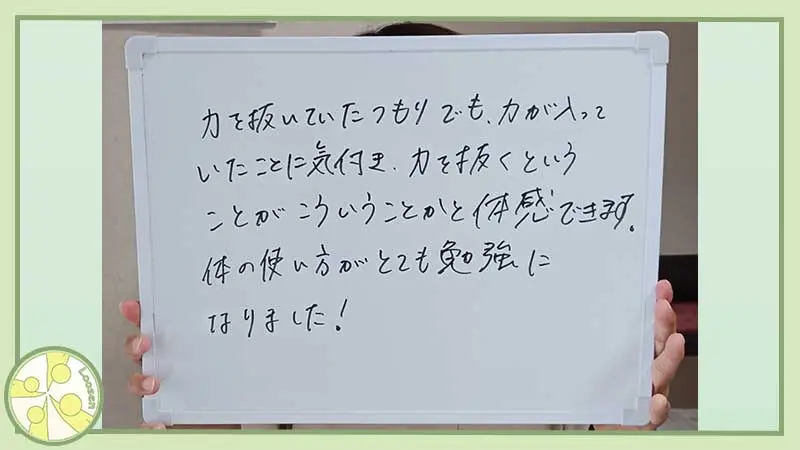 力を抜いていたつもりでも、力が入って
いたことに気付き、力を抜くという
ことがこういうことかと体感できます。
体の使い方がとても勉強に
なりました!
Loosen